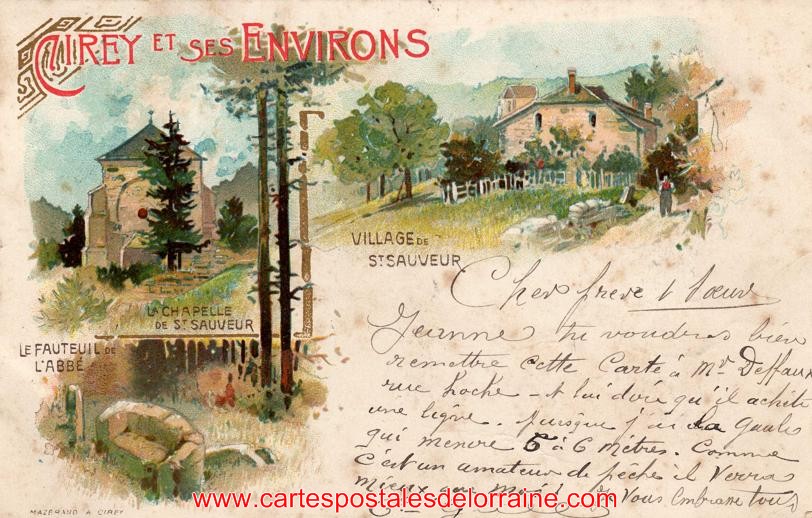 CIREY ET SES ENVIRONS
VILLAGE DE
ST SAUVEUR
LA CHAPELLE
DE ST SAUVEUR
LE FAUTEUIL DE
L'ABBÉ
Cher frere & Sœur
Jeanne tu voudras bien
remettre cette Carte à Mr Deffaux
rue hoche - & lui dire qu'il achète
une ligne. puisque j'ai la Gaule
qui mesure 5 à 6 mètres. Comme
c'est un amateur de pêche il verra
mieux que moi. Vous Embrasse tous
MAZERAND A CIREY
www.cartespostalesdelorraine.com